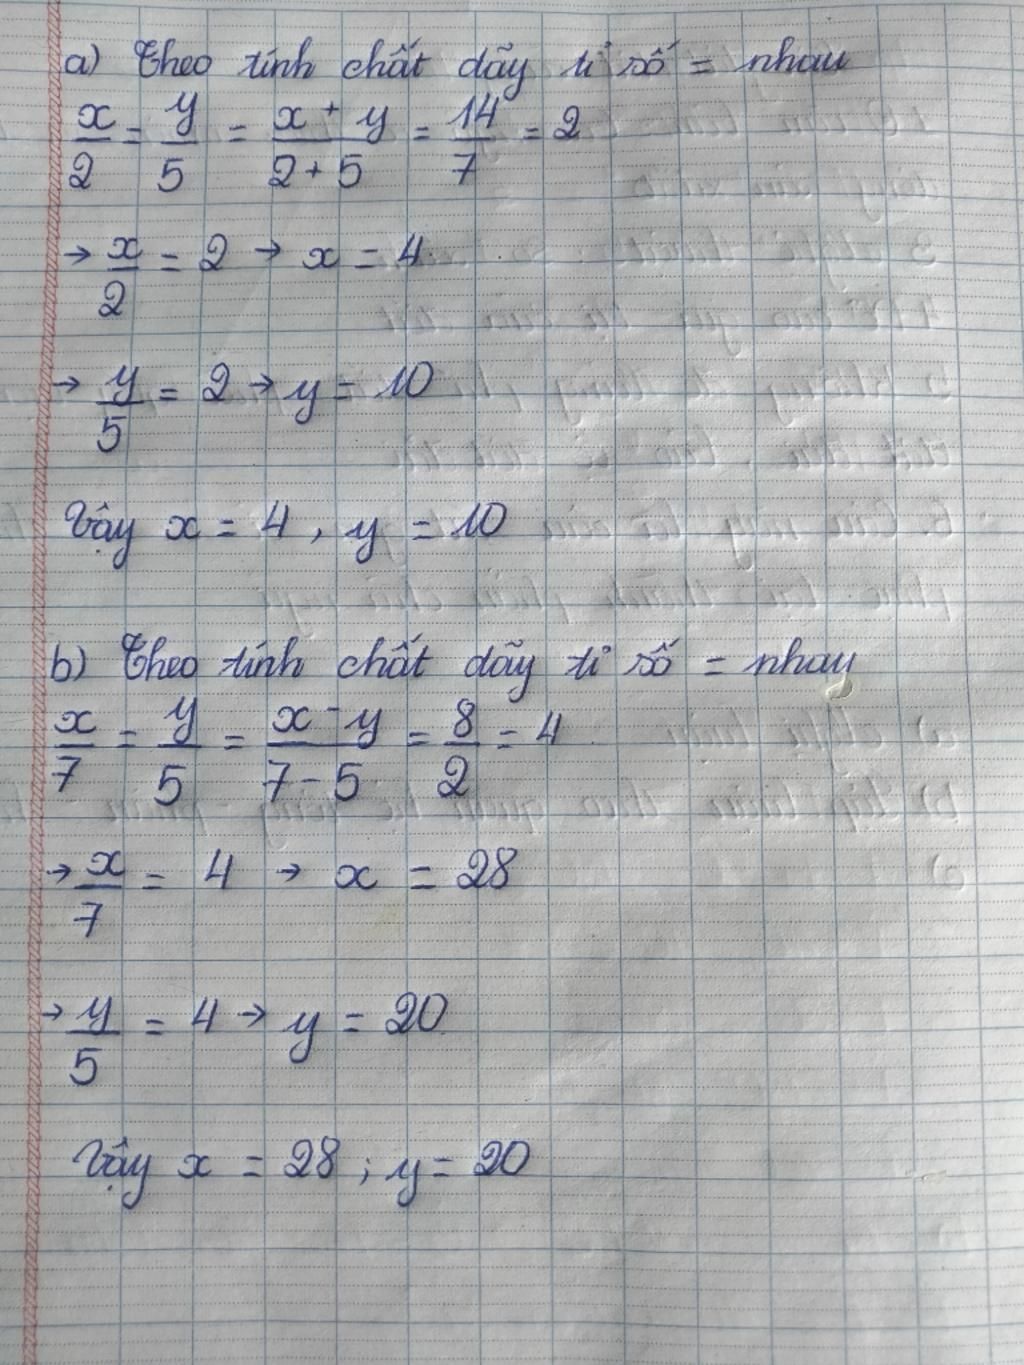 a) Theo tính chất dãy tỉ số = nhau
x/2 = y/5 = x + y/2 + 5 = 14/7 = 2
→ x/2 = 2 → x = 4
→ y/5 = 2 → y = 10
Vậy x = 4 , y = 10
b) Theo tính chất dãy tỉ số = nhau
x/7 = y/5 = x - y/7 - 5 = 8/2 = 4
→ x/7 = 4 → x = 28
→ y/5 = 4 → y = 20
Vậy x = 28 ; y = 20